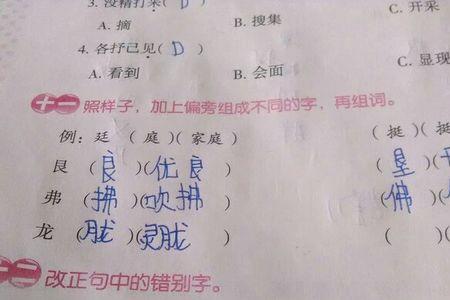 3. 没精打采( D ) C. 开采
A. 摘 B. 搜集
4. 各抒己见( D ) C. 显现
A. 看到 B. 会面
十一 照样子，加上偏旁组成不同的字，再组词。
例：廷 ( 庭 )( 家庭 ) ( 挺 )( 挺
艮 ( 良 )( 优良 ) ( 垦 )(
弗 ( 拂 )( 吹拂 ) ( 佛 )(
龙 ( 胧 )( 灵胧 ) ( )(
十二 改正句中的错别字。